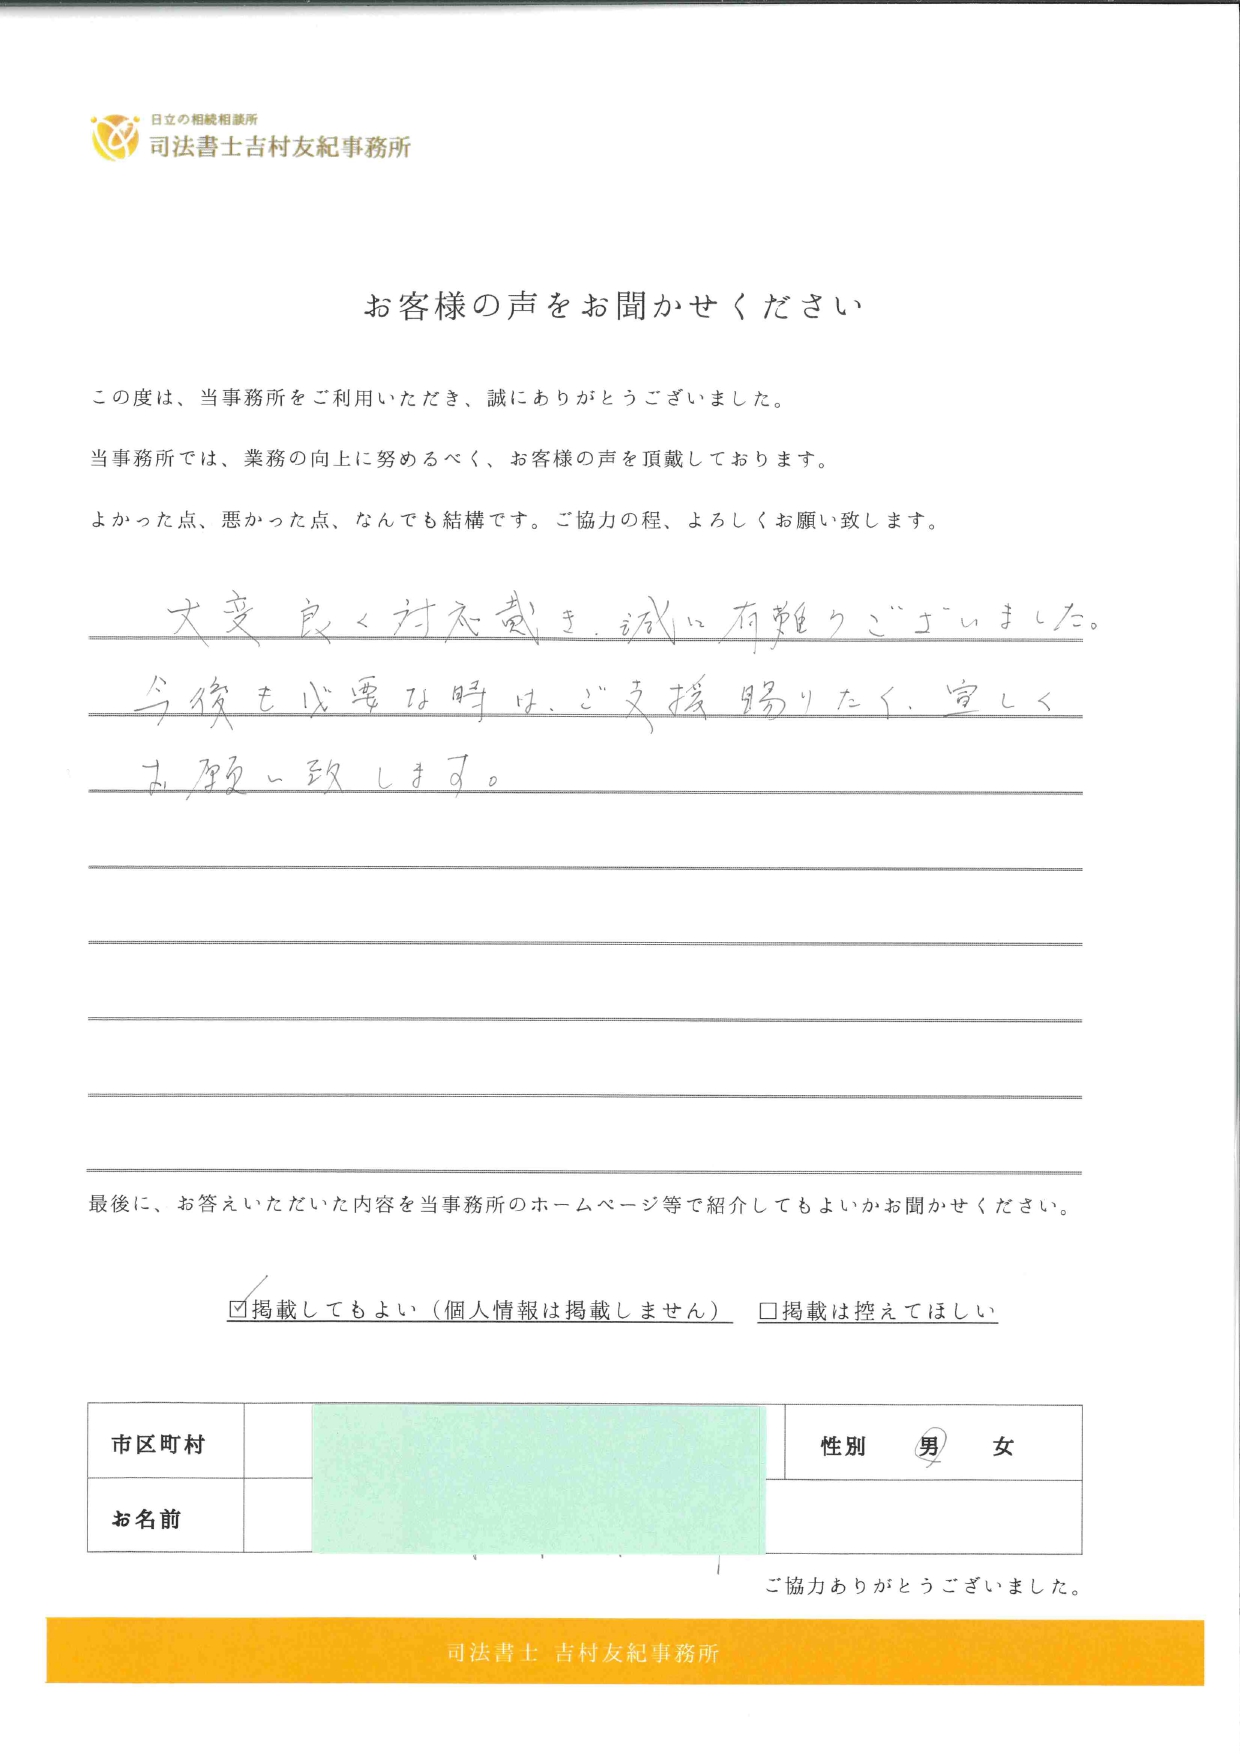 日立の相続相談所
司法書士吉村友紀事務所
お客様の声をお聞かせください
この度は、当事務所をご利用いただき、誠にありがとうございました。
当事務所では、業務の向上に努めるべく、お客様の声を頂戴しております。
よかった点、悪かった点、なんでも結構です。ご協力の程、よろしくお願い致します。
大変良く対応戴き、誠に有難うございました。
今後も必要な時は、ご支援賜りたく、宜しく
お願い致します。
最後に、お答えいただいた内容を当事務所のホームページ等で紹介してもよいかお聞かせください。
☑掲載してもよい（個人情報は掲載しません） □掲載は控えてほしい
市区町村 性別 男 女
お名前
ご協力ありがとうございました。
司法書士 吉村友紀事務所